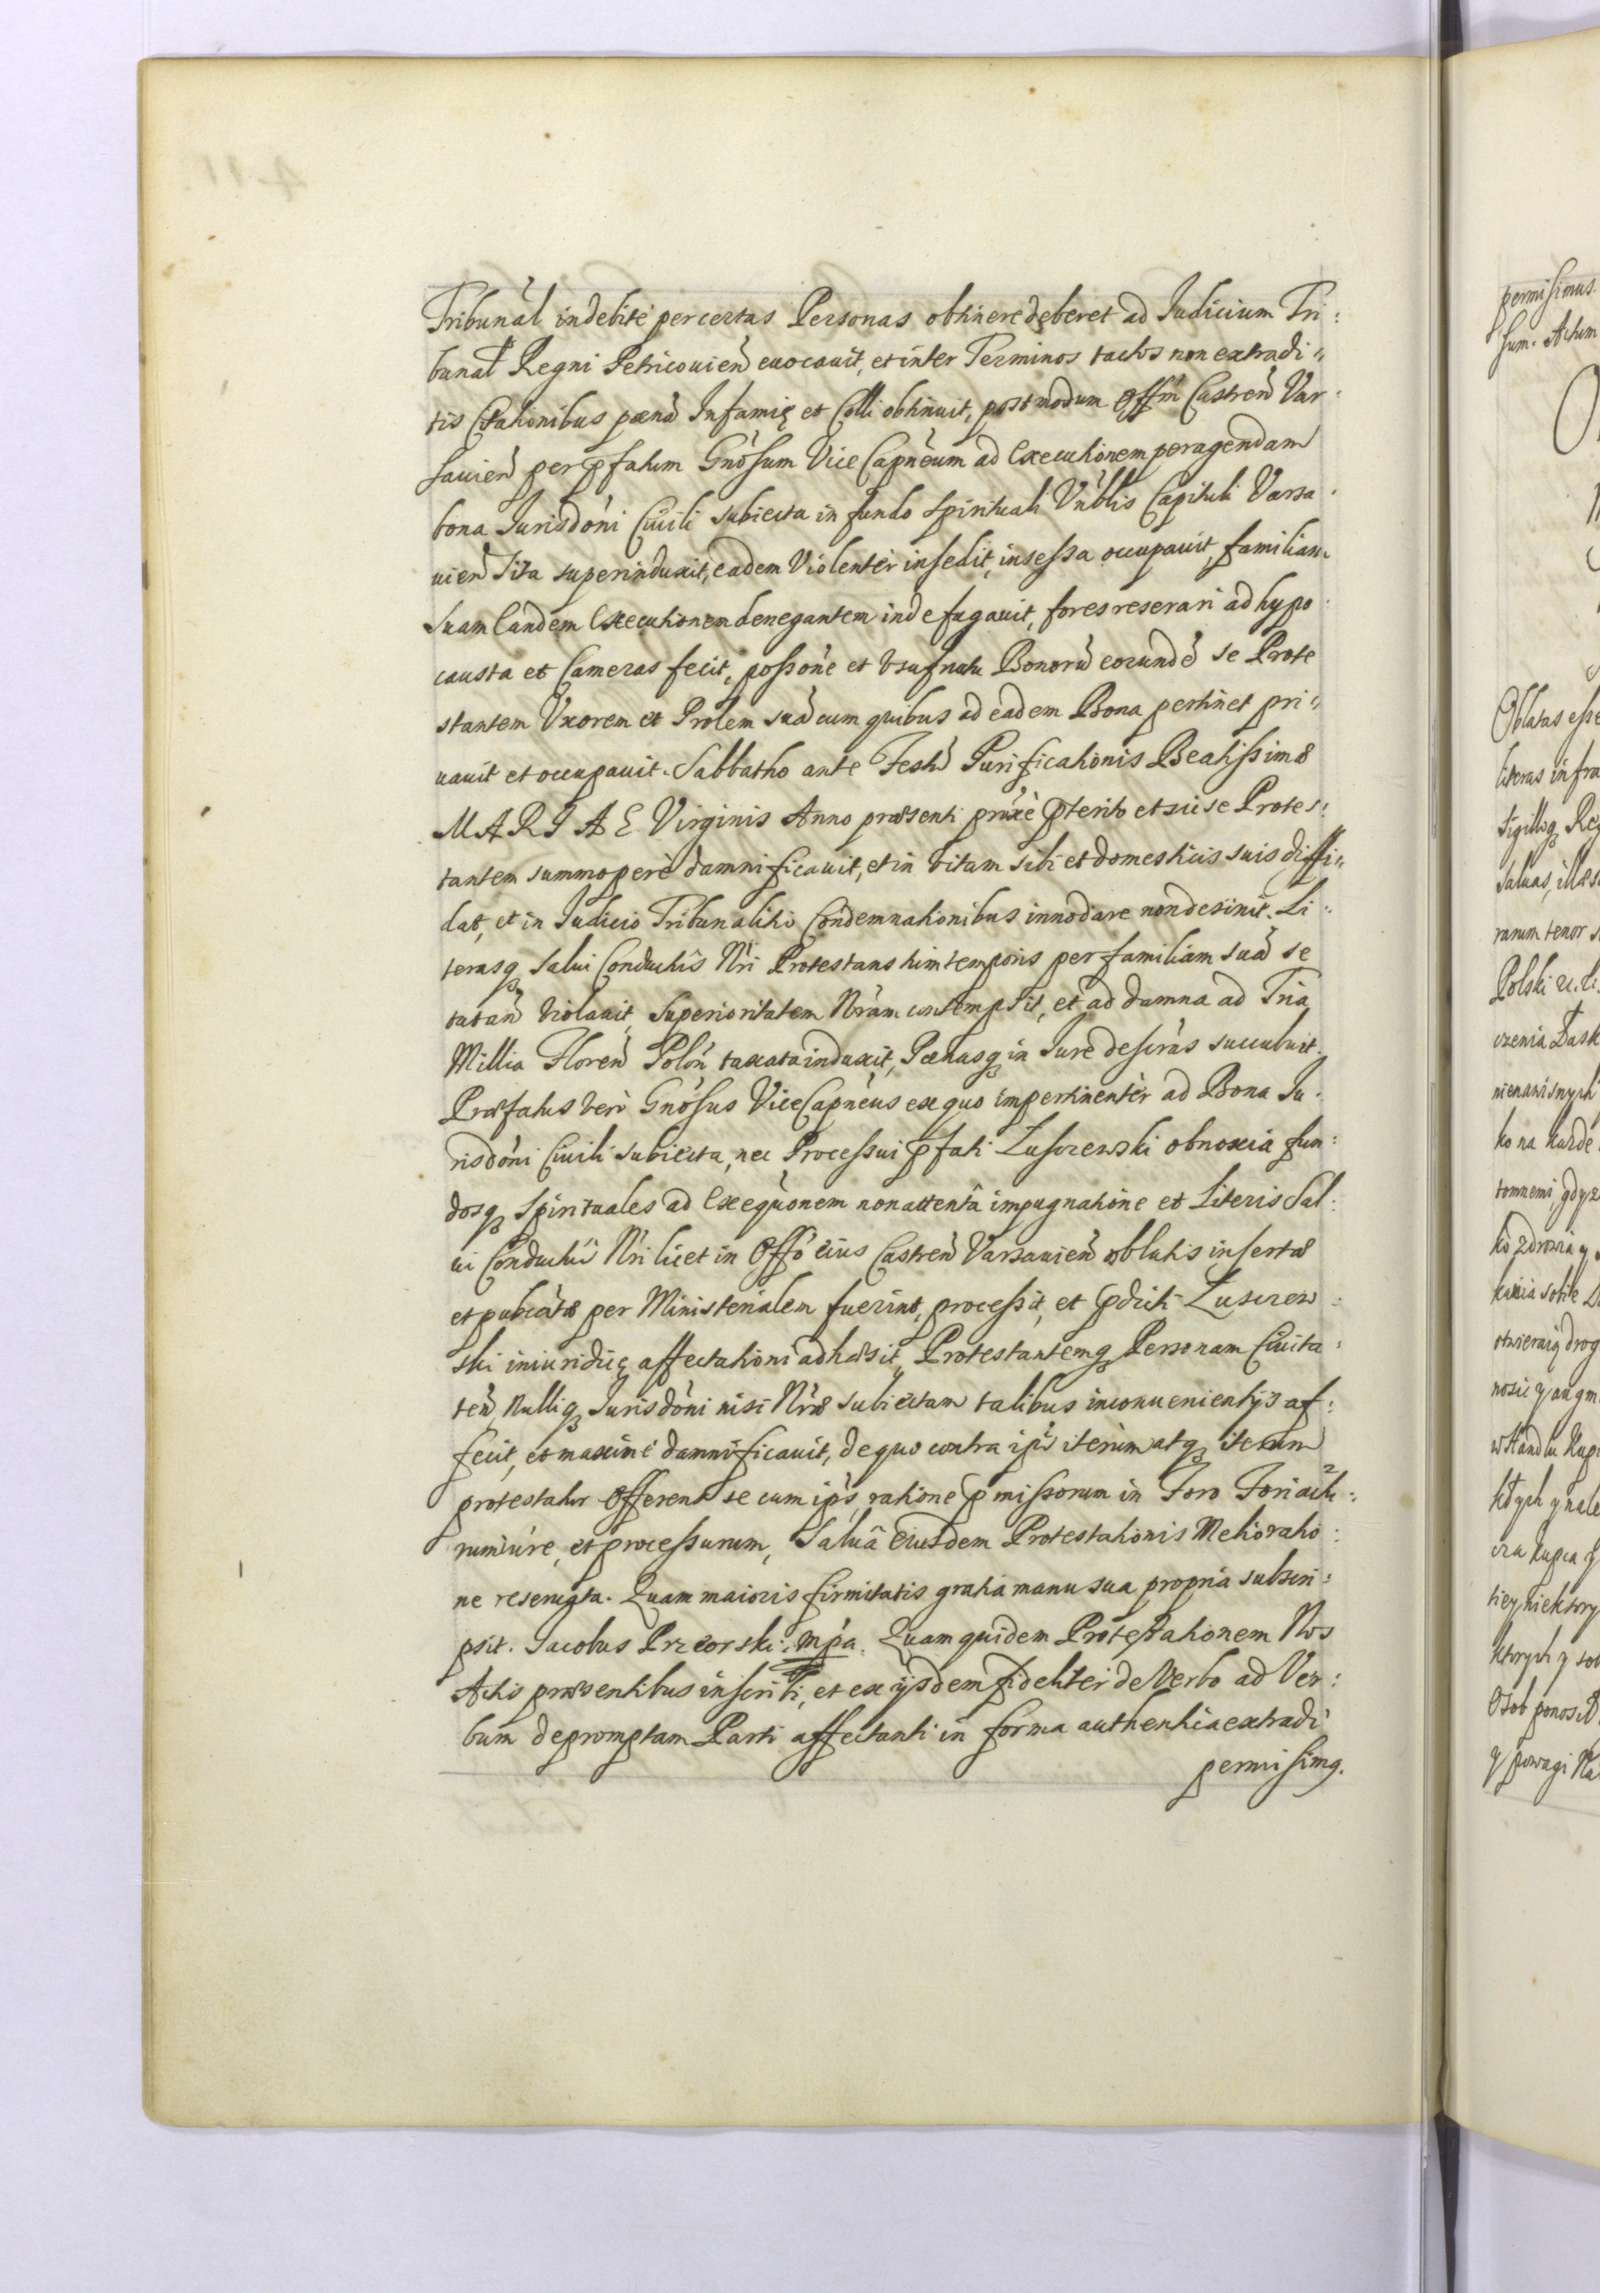 Tribunal indebitè per certas Personas obtinere deberet ad Iudicium Tri:
bunal Regni Petricouien̄ euocauit, et inter Terminos tactos non extradi„
tis Citationibus pœnā Infamię et Colli obtinuit, postmodum Offm̄ Castren̄ Var„
sauien̄ per pfatum Gn̄osum Vice Capn̄eum ad Executionem peragendam
bona Iurisdōni Ciuili subiecta in fundo Spirituali Vn̄blis Capituli Varsa„
uien̄ Sita superinduxit, eadem Violentèr insedit, insessa occupauit, familiam
suam Eandem Executionem denegantem inde fugauit, fores reserari ad hypo
causta et Cameras fecit, possōne et vsufructu Bonorū eorundē se Prote
stantem Vxorem et Prolem suā cum quibus ad eadem Bona pertinet pri„
uauit et occupauit. Sabbatho ante Festū Purificationis Beatissimæ
MARIAE Virginis Anno præsenti proxè pterito et sic se Protes:
tantem summoperè damnificauit, et in vitam sibi et domesticis suis diffi„
dat, et in Iudicio Tribunalitio Condemnationibus innodare non desinit. Li„
terasq́ Salui Conductûs Nri Protestans tum temporis per familiam suā se
tutan̄ violauit, Superioritatem Nram contempsit, et ad damna ad Tria
Millia Floren̄ Polon̄ taxata induxit, Pœnasq́ in Iure descrās succubuit.
Præfatus verò Gn̄osus ViceCapn̄eus ex quo impertinentèr ad Bona Iu„
risdōni Ciuili subiecta, nec Processui pfati Luszczewski obnoxia fun:
dosq́ Spirituales ad Exequōnem non attentâ impugnatione et Literis Sal:
ui Conductûs Nri licet in Offō eius Castren̄ Varsauien̄ oblatis insertæ
et publicatæ per Ministerialem fuerint, processit, et pdicti Luszczew:
ski iniuridicę affectationi adhæsit, Protestantemq́ Personam Ciuita:
ten̄, Nulliq́ Iurisdōni nisi Nræ subiectam talibus inconuenientijs af:
fecit, et maximè damnificauit, de quo contra ip̄m iterùm atq́ iterum
protestatur Offerens se cum ip̄s ratione pmissorum in Foro Fori actu:
rum iure, et processurum, Saluâ eiusdem Protestationis Melioratio:
ne reseruata. Quam maioris firmitatis gratia manu sua propria subscri:
psit. Iacobus Przeorski mp̄a. Quam quidem Protestationem Nos
Actis præsentibus inscribi, et ex ijsdem fideliter de Verbo ad Ver:
bum depromptam Parti affectanti in forma authentica extradi
permisimꝰ.
permisimus
sum. Actum
Oblatas esse
literas infra
sigilloq́ Reg
saluas, illæs
rarum tenor
Polski
czenia Łask
nienawisnych
ko na każde
tomnemi, gdyz
otwieraią drog
nosić y augm
w Handlu Kup
y nale
cza kupca
tiey niektory
ktorych y
Osob ponosić
y powagi Na